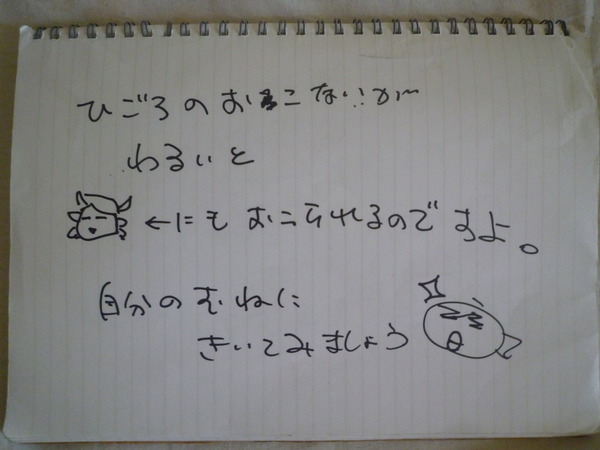 ひごろのおこないが
わるいと
←にもおこられるのですよ。
自分のむねに
きいてみましょう